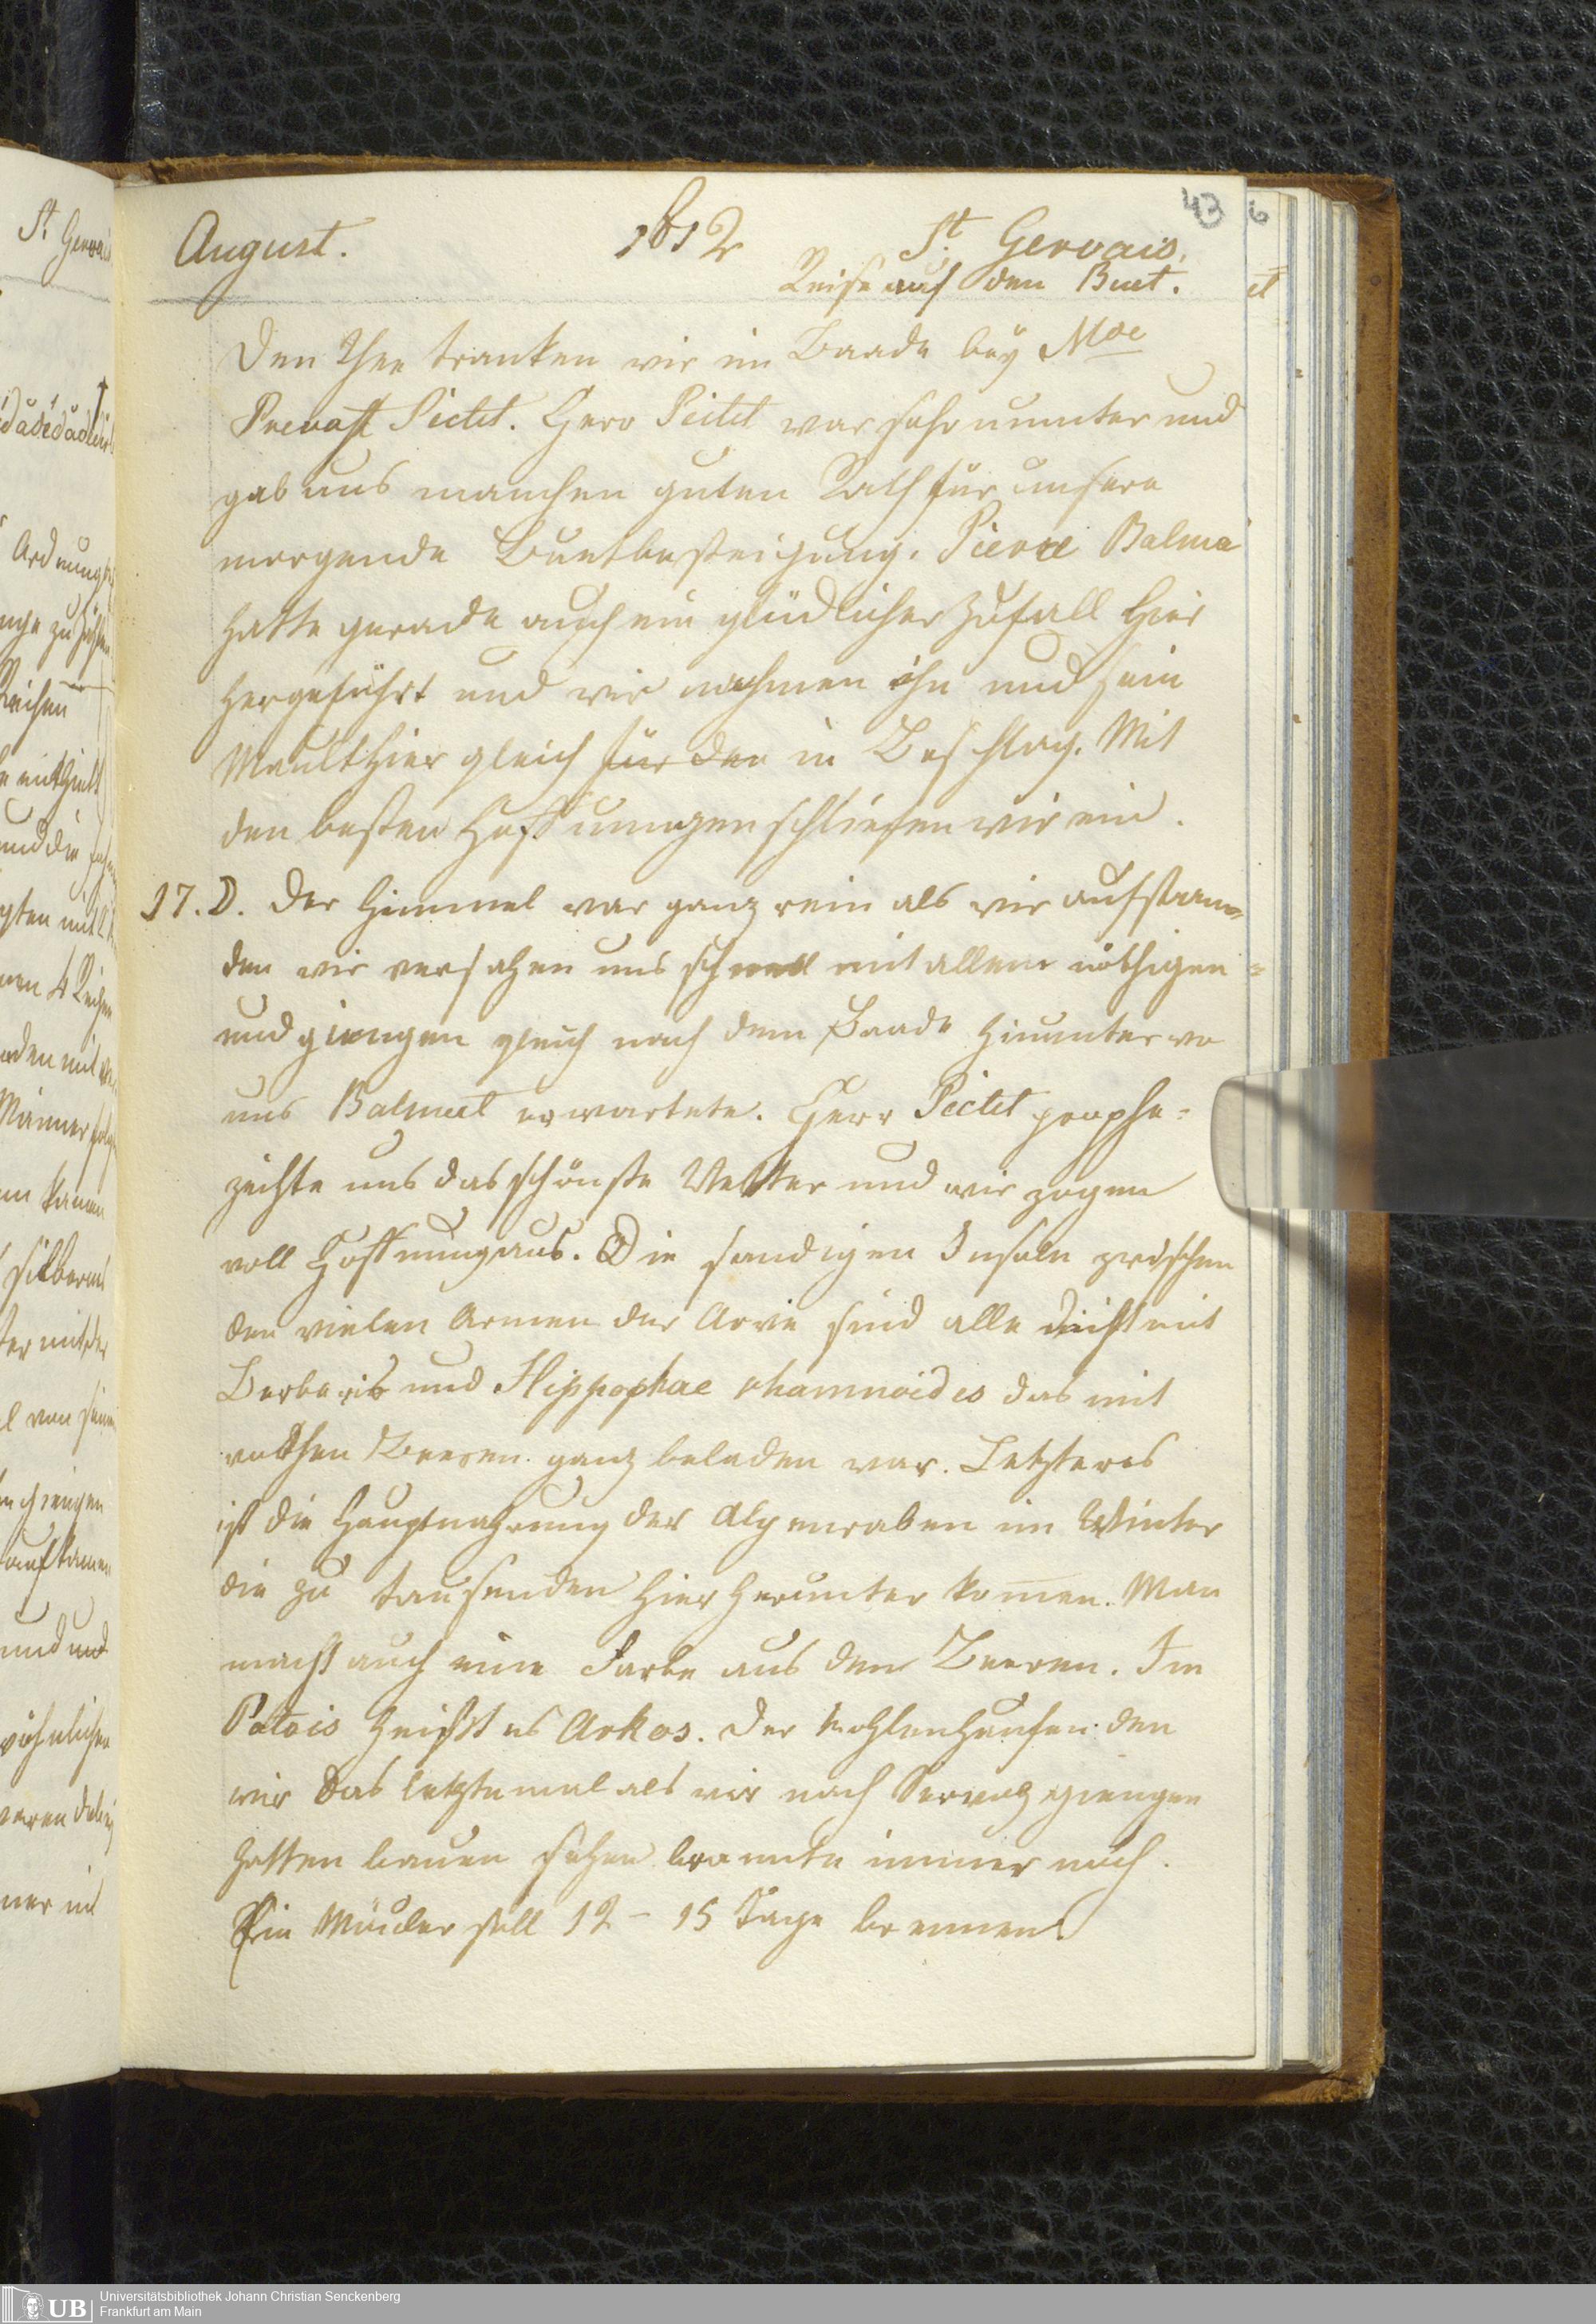 43
August. 1812 St. Gervais.
Reise auf den Buet.
Den Thee tranken wir im Baade bey Mde
Prevost Pictet. Herr Pictet war sehr munter und
gab uns manchen guten Rath für unsere
morgende Buetbesteigung. Pierre Balma
hatte gerade auch ein glücklicher Zufall hier
hergeführt und wir nahmen ihn und sein
Maulthier gleich für den in Beschlag. Mit
den besten Hoffnungen schliefen wir ein.
17. D. Der Himmel war ganz rein als wir aufstan=
den wir versahen uns schnell mit allem nöthigen
und giengen gleich nach dem Baade hinunter wo
uns Balmat erwartete. Herr Pictet prophe=
zeihte uns das schönste Wetter und wir zogen
voll Hoffnung aus. Die sandigen Inseln zwischen
den vielen Armen der Arve sind alle dicht mit
Berberis und Hippophae rhamnoides das mit
rothen Beeren ganz beladen war. Letzteres
ist die Hauptnahrung der Alpenraben im Winter
die zu tausenden hier herunter kommen. Man
macht auch eine Farbe aus den Beeren. Im
Patois heißt es Arkos. Der Kohlenhaufen den
wir das letztemal als wir nach Servoz giengen
hatten bauen sehen brannte immer noch.
Ein soll 12 – 15 Tage brennen.
St. Gervais
Universitätsbibliothek Johann Christian Senckenberg
Frankfurt am Main
UB